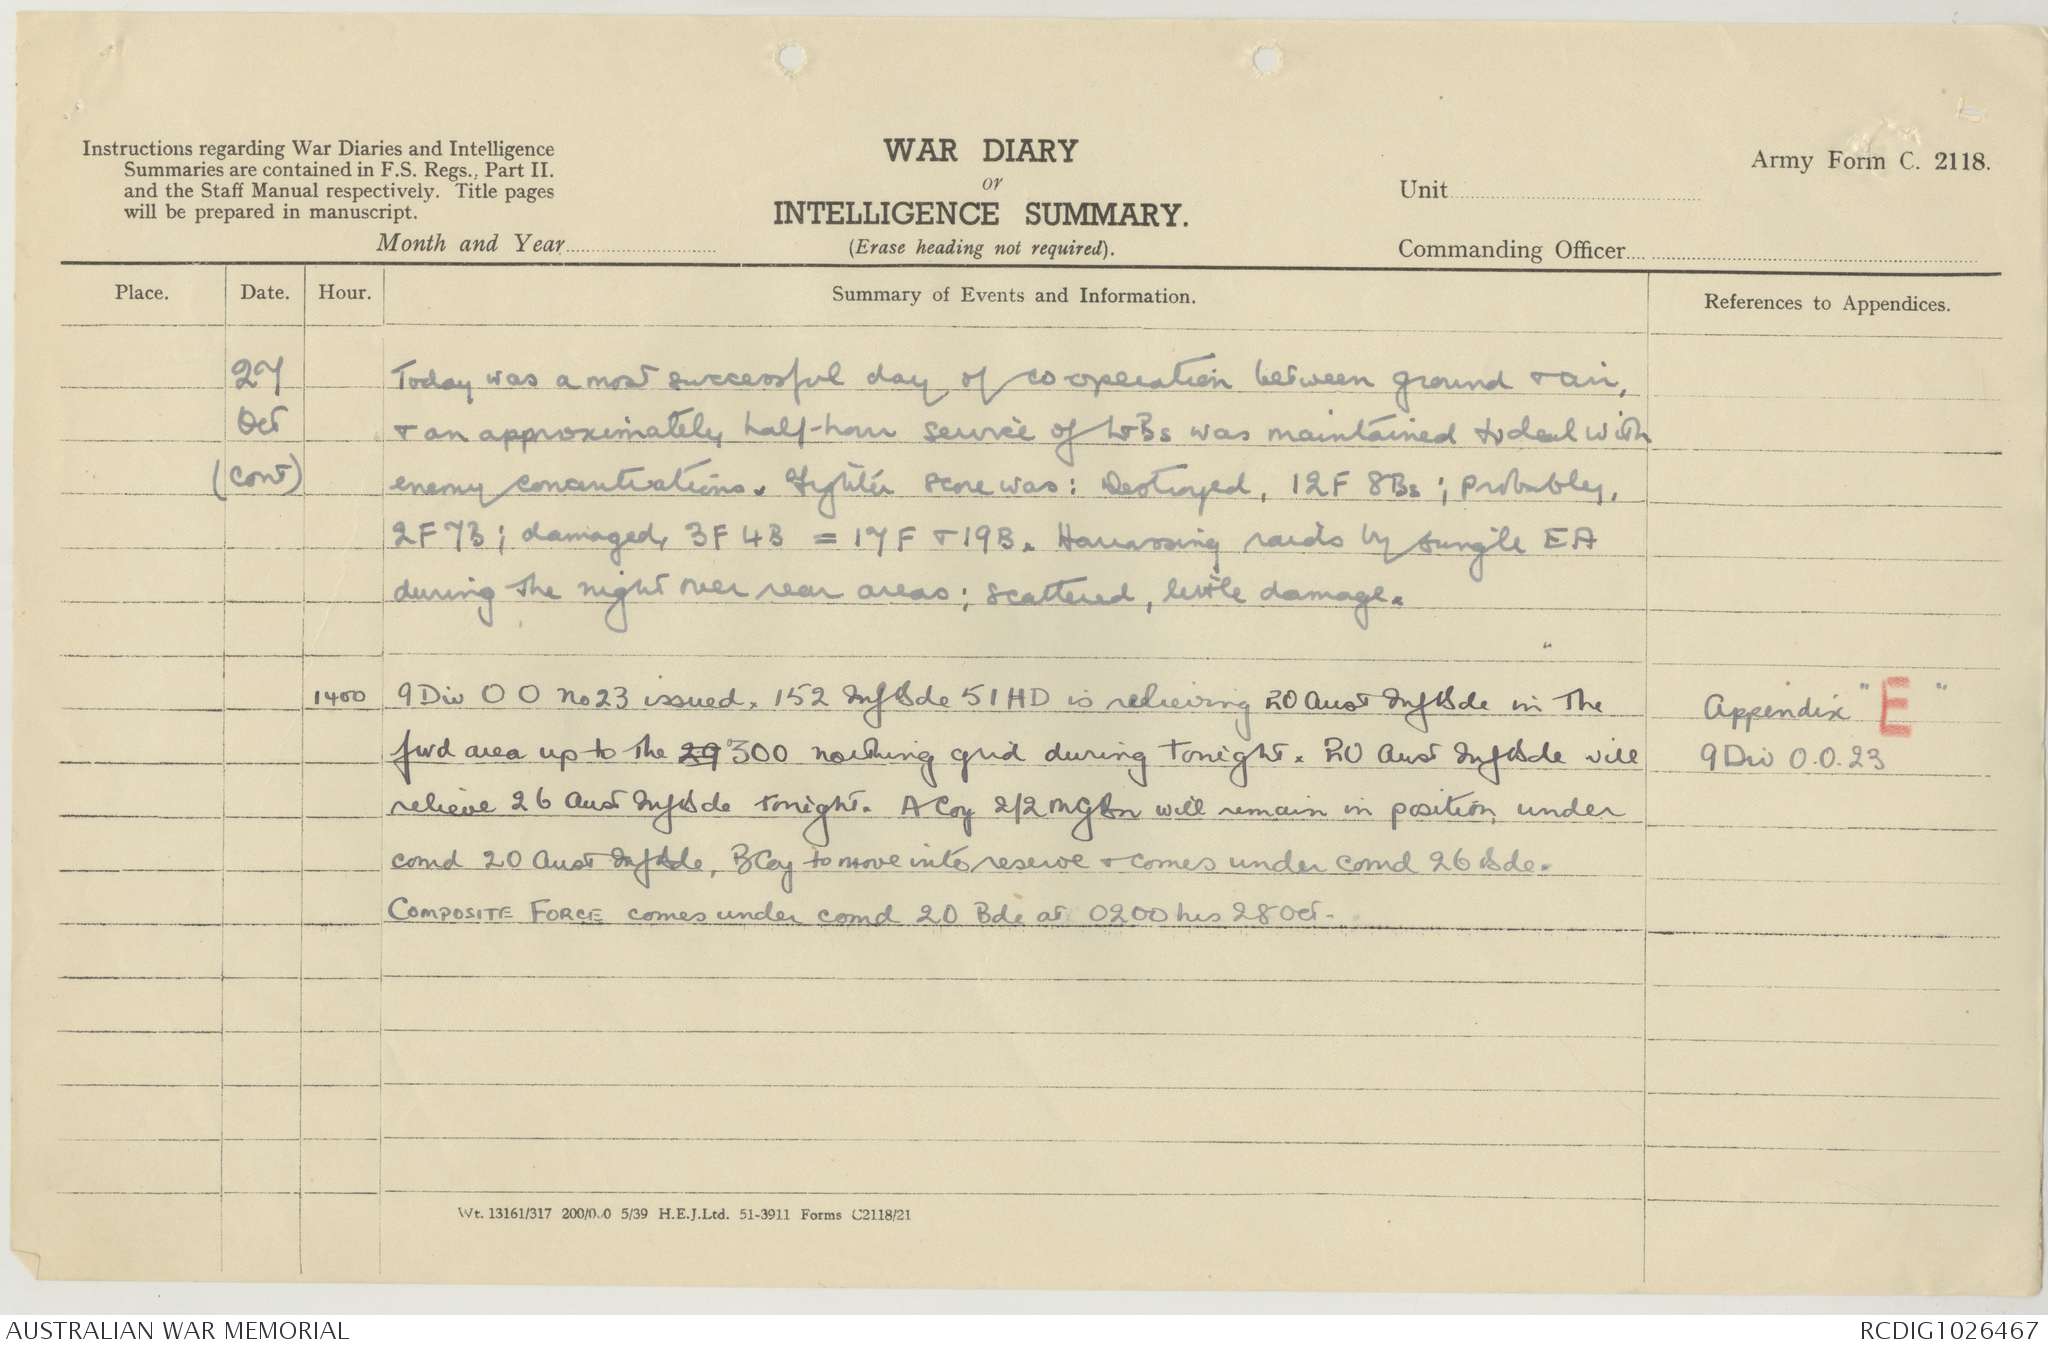 Instructions regarding War Diaries and Intelligence
Summaries are contained in F.S. Regs., Part II.
and the Staff Manual respectively. Title pages
will be prepared in manuscript.
Month and Year
WAR DIARY
or
INTELLIGENCE SUMMARY.
(Erase heading not required).
Army Form C. 2118.
Unit
Commanding Officer
Place. Date. Hour. Summary of Events and Information. References to Appendices.
27 Today was a most successful day of co operation between ground & air,
Oct & an approximately half-hour service of LtBs was maintained to deal with
(Cont) enemy concentrations. Fighter score was: Destroyed, 12F 8Bs; probably,
2F 7B; damaged, 3F 4B = 17F & 19B. Harrassing raids by single EA
during the night over rear areas; scattered, little damage.
1400 9 Div O O No 23 issued. 152 Inf Bde 51 HD is relieving 20 Aust Inf Bde in the Appendix "E"
fwd area up to the 29 300 northing grid during tonight. 20 Aust Inf Bde will 9 Div O.O. 23
relieve 26 Aust Inf Bde tonight. A Coy 2/2 MG Bn will remain in position under
comd 20 Aust Inf Bde, B Coy to move into reserve & comes under comd 26 Bde.
COMPOSITE FORCE comes under comd 20 Bde at 0200 hrs 28 Oct.
Wt. 13161/317 200/0.0 5/39 H.E.J.Ltd. 51-3911 Forms C2118/21
AUSTRALIAN WAR MEMORIAL RCDIG1026467